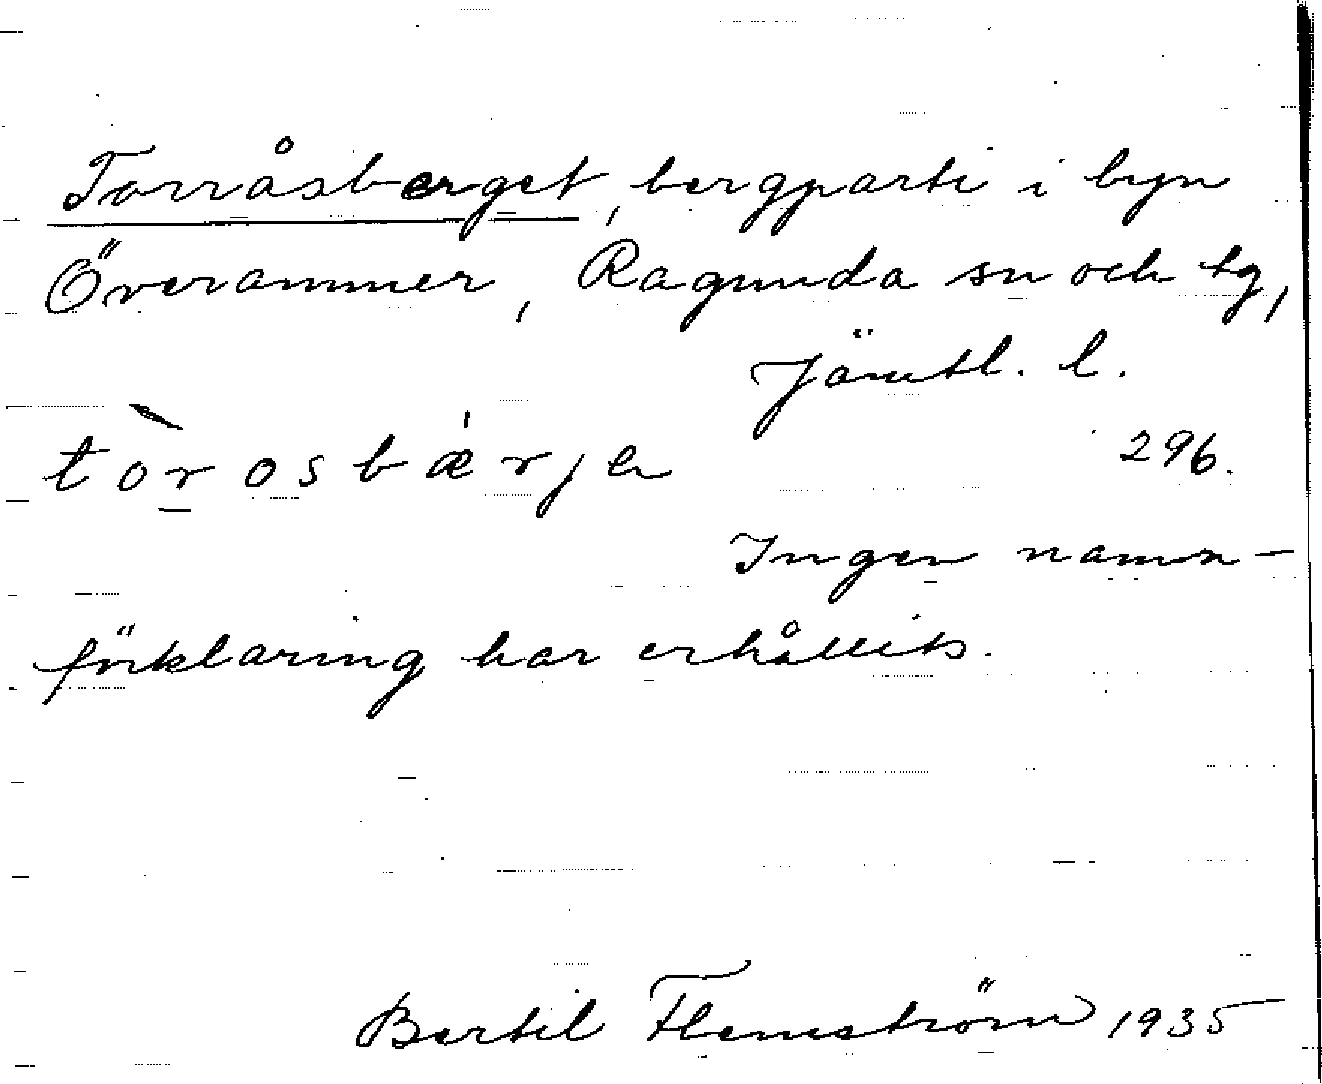 Torråsberget, bergparti i byn
Överammer, Ragunda sn och tg,
Jämtl. l.
tòr̲osbæ̍rjə 296.
Ingen namn-
förklaring har erhållits.
Bertil Flemström 1935